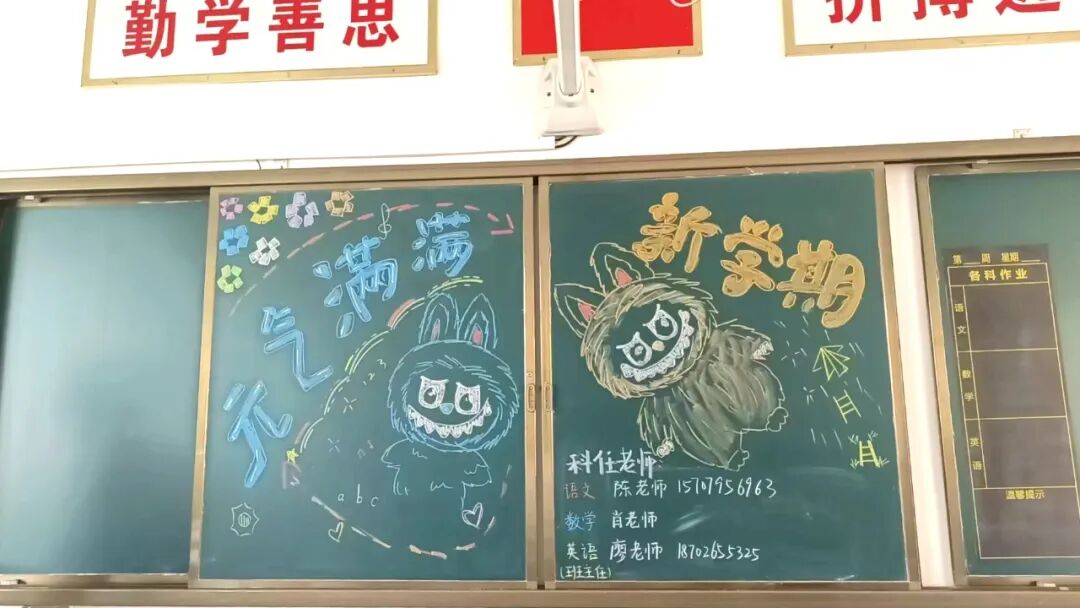 勤学善思
拼搏进
元气满满
1 2 3
a b c
新学期
科任老师
语文 陈老师 15707956963
数学 肖老师
英语 廖老师 18702655325
(班主任)
第 周 星期
各科作业
语文
数学
英语
温馨提示